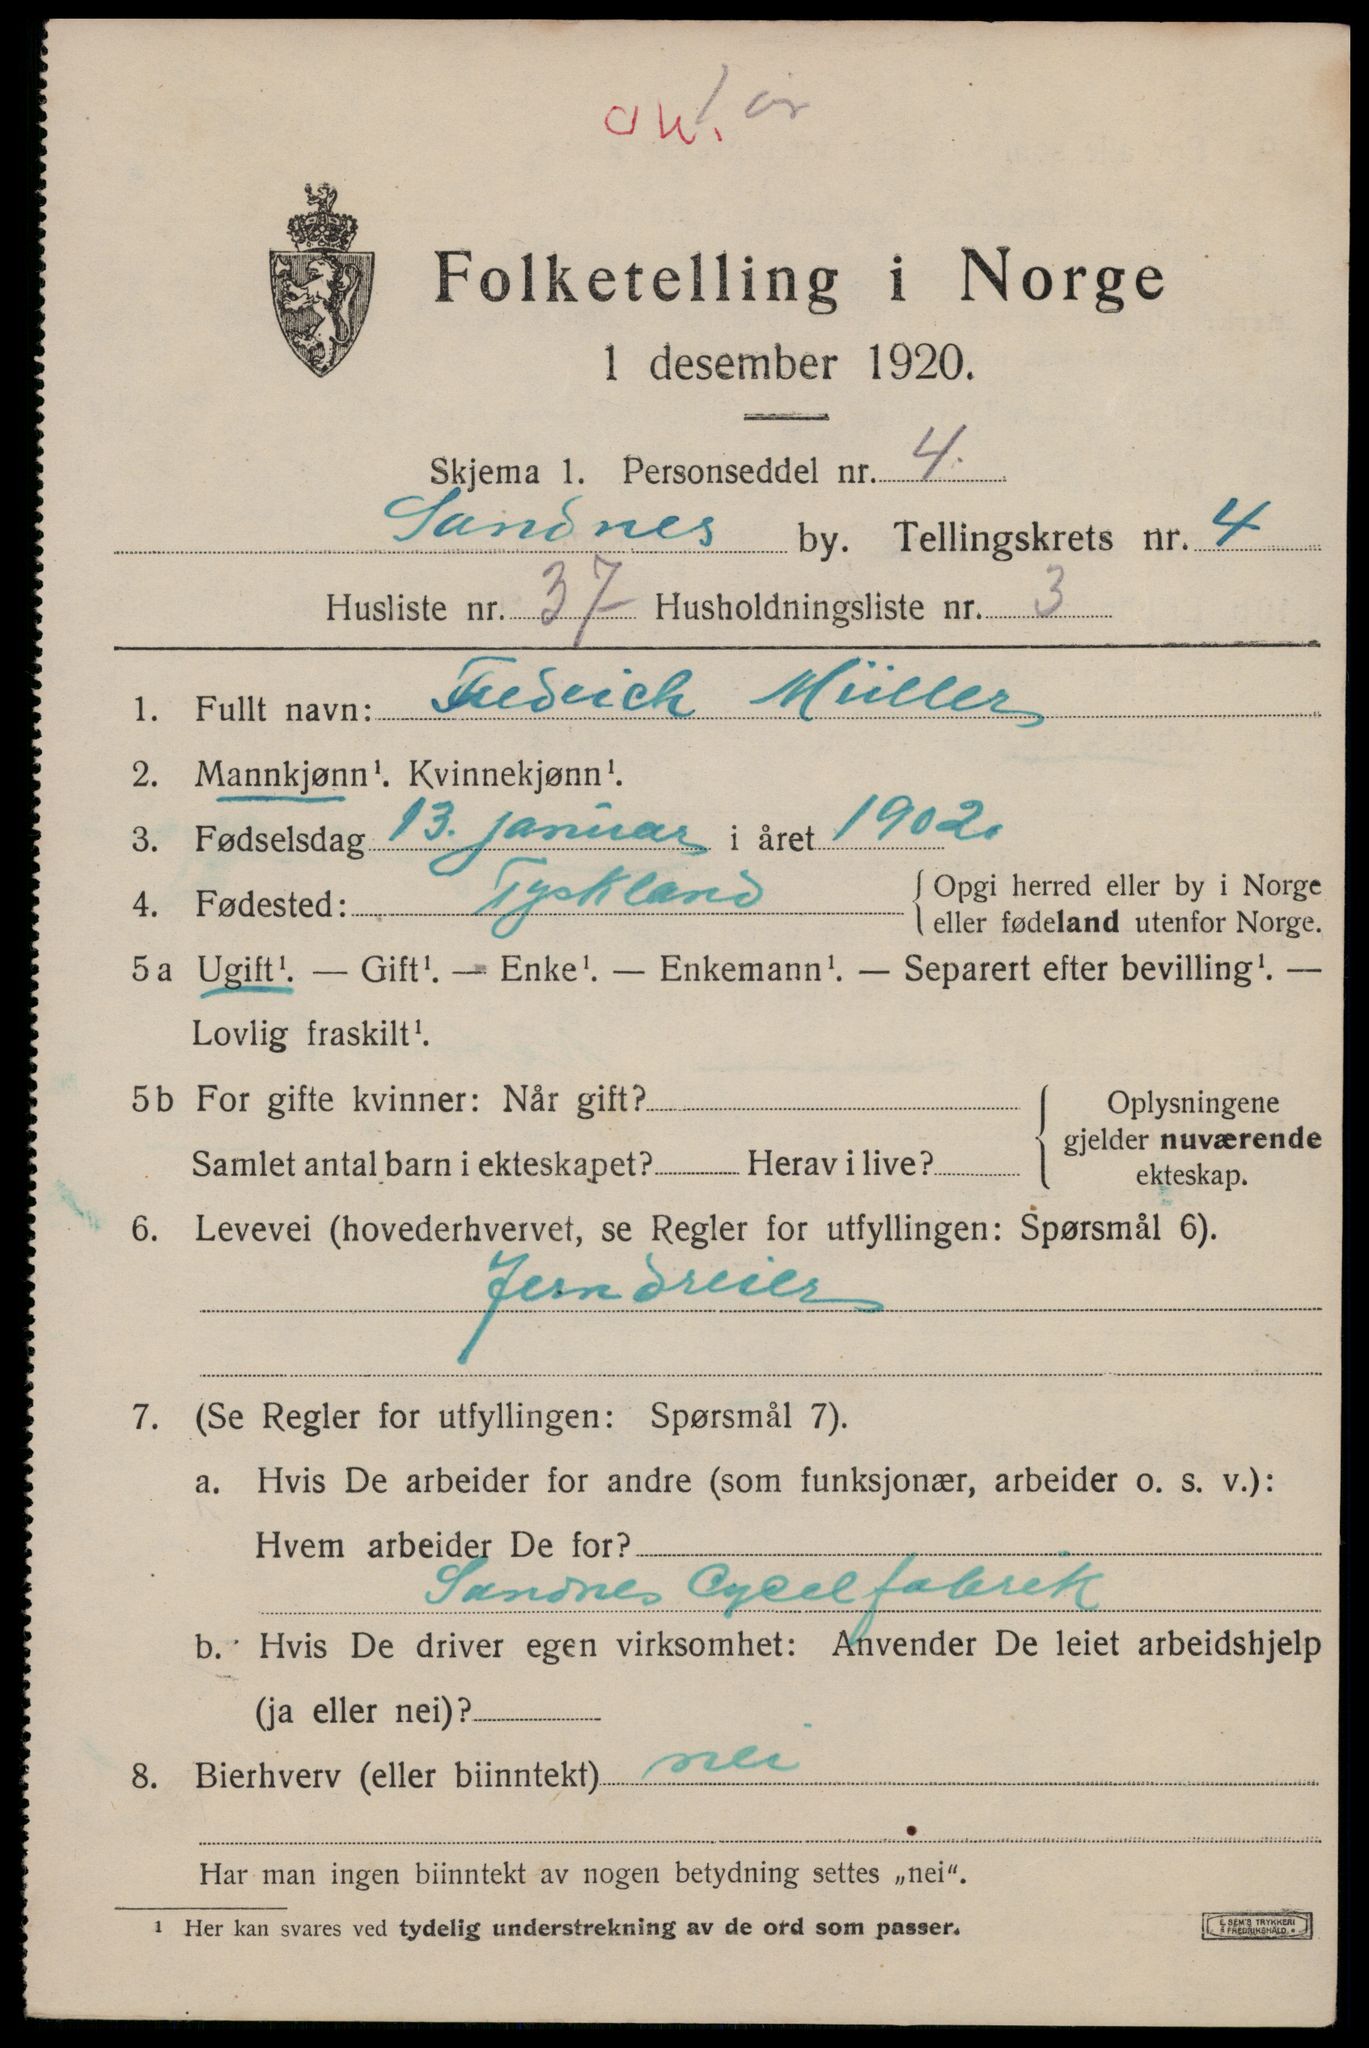 Folketelling i Norge
1 desember 1920.
Skjema 1. Personseddel nr. 4.
Sandnes by. Tellingskrets nr. 4
Husliste nr. 37 Husholdningsliste nr. 3
1. Fullt navn: Fredrich Müller
2. Mannkjønn¹. Kvinnekjønn¹.
3. Fødselsdag 13. januar i året 1902.
4. Fødested: Tyskland { Opgi herred eller by i Norge
eller fødeland utenfor Norge.
5a Ugift¹. — Gift¹. — Enke¹. — Enkemann¹. — Separert efter bevilling¹. —
Lovlig fraskilt¹.
5b For gifte kvinner: Når gift?
Samlet antal barn i ekteskapet? Herav i live?
Oplysningene
gjelder nuværende
ekteskap.
6. Levevei (hovederhvervet, se Regler for utfyllingen: Spørsmål 6).
Jerndreier
7. (Se Regler for utfyllingen: Spørsmål 7).
a. Hvis De arbeider for andre (som funksjonær, arbeider o. s. v.):
Hvem arbeider De for?
Sandnes Cycelfabrik
b. Hvis De driver egen virksomhet: Anvender De leiet arbeidshjelp
(ja eller nei)?
8. Bierhverv (eller biinntekt) nei
Har man ingen biinntekt av nogen betydning settes „nei“.
¹ Her kan svares ved tydelig understrekning av de ord som passer.
E. SEM'S TRYKKERI
FREDRIKSHALD